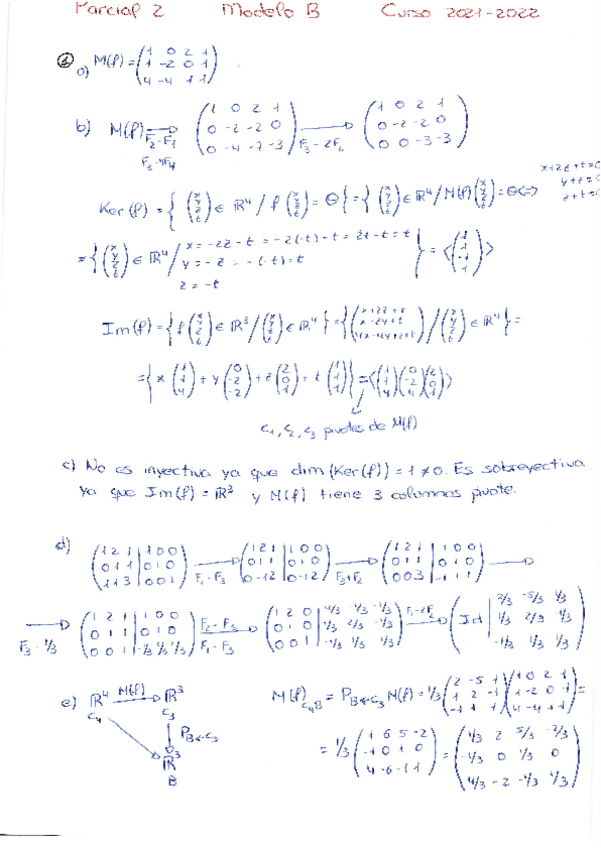 Parcial 2 Modelo B Curso 2021-2022
① a) M(f) = (1 0 2 1 / 1 -2 0 1 / 4 -4 1 1)
b) M(f) → F₂-F₁ F₃-4F₁ (1 0 2 1 / 0 -2 -2 0 / 0 -4 -7 -3) → F₃-2F₂ (1 0 2 1 / 0 -2 -2 0 / 0 0 -3 -3)
Ker(f) = { (x y z t) ∈ ℝ⁴ / f(x y z t) = Θ } = { (x y z t) ∈ ℝ⁴ / M(f)(x y z t) = Θ <=> x+2z+t=0 y+z=0 z+t=0
= { (x y z t) ∈ ℝ⁴ / x = -2z-t = -2(-t)-t = 2t-t = t
y = -z = -(-t) = t
z = -t } = <(1 1 -1 1)>
Im(f) = { f(x y z t) ∈ ℝ³ / (x y z t) ∈ ℝ⁴ } = { (x+2z+t / x-2y+t / 4x-4y+z+t) / (x y z t) ∈ ℝ⁴ } =
= { x(1 1 4) + y(0 -2 -2) + z(2 0 1) + t(1 1 1) } = <(1 1 4)(0 -2 -4)(2 0 1)>
c₁, c₂, c₃ pivotes de M(f)
c) No es inyectiva ya que dim(Ker(f)) = 1 ≠ 0. Es sobreyectiva
ya que Im(f) = ℝ³ y M(f) tiene 3 columnas pivote.
d) (1 2 1 | 1 0 0 / 0 1 1 | 0 1 0 / 1 1 3 | 0 0 1) → F₁-F₃ (1 2 1 | 1 0 0 / 0 1 1 | 0 1 0 / 0 -1 2 | 0 -1 2) → F₃+F₂ (1 2 1 | 1 0 0 / 0 1 1 | 0 1 0 / 0 0 3 | -1 1 1) →
→ F₃·1/3 (1 2 1 | 1 0 0 / 0 1 1 | 0 1 0 / 0 0 1 | -1/3 1/3 1/3) → F₂-F₃ F₁-F₃ (1 2 0 | 4/3 -1/3 -1/3 / 0 1 0 | 1/3 2/3 -1/3 / 0 0 1 | -1/3 1/3 1/3) → F₁-2F₂ (Id | 2/3 -5/3 1/3 / 1/3 2/3 -1/3 / -1/3 1/3 1/3)
e) ℝ⁴ M(f) → ℝ³ M(f) C₄B = P B←C₃ M(f) = 1/3 (2 -5 1 / 1 2 -1 / -1 1 1)(1 0 2 1 / 1 -2 0 1 / 4 -4 1 1) =
C₄ C₃
P B←C₃
ℝ³
B
= 1/3 (1 6 5 -2 / -1 0 1 0 / 4 -6 -1 1) = (1/3 2 5/3 -2/3 / -1/3 0 1/3 0 / 4/3 -2 -1/3 1/3)